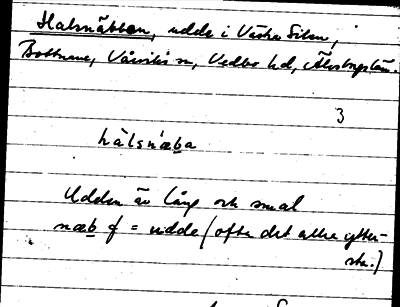 Halsnäbben, udde i Västra Silen,
Bottnane, Vårviks sn, Vedbo hd, Älvsborgs län.
3
hàlsnæba
Udden är lång och smal
næb f = udde (ofta det allra ytter-
sta.)